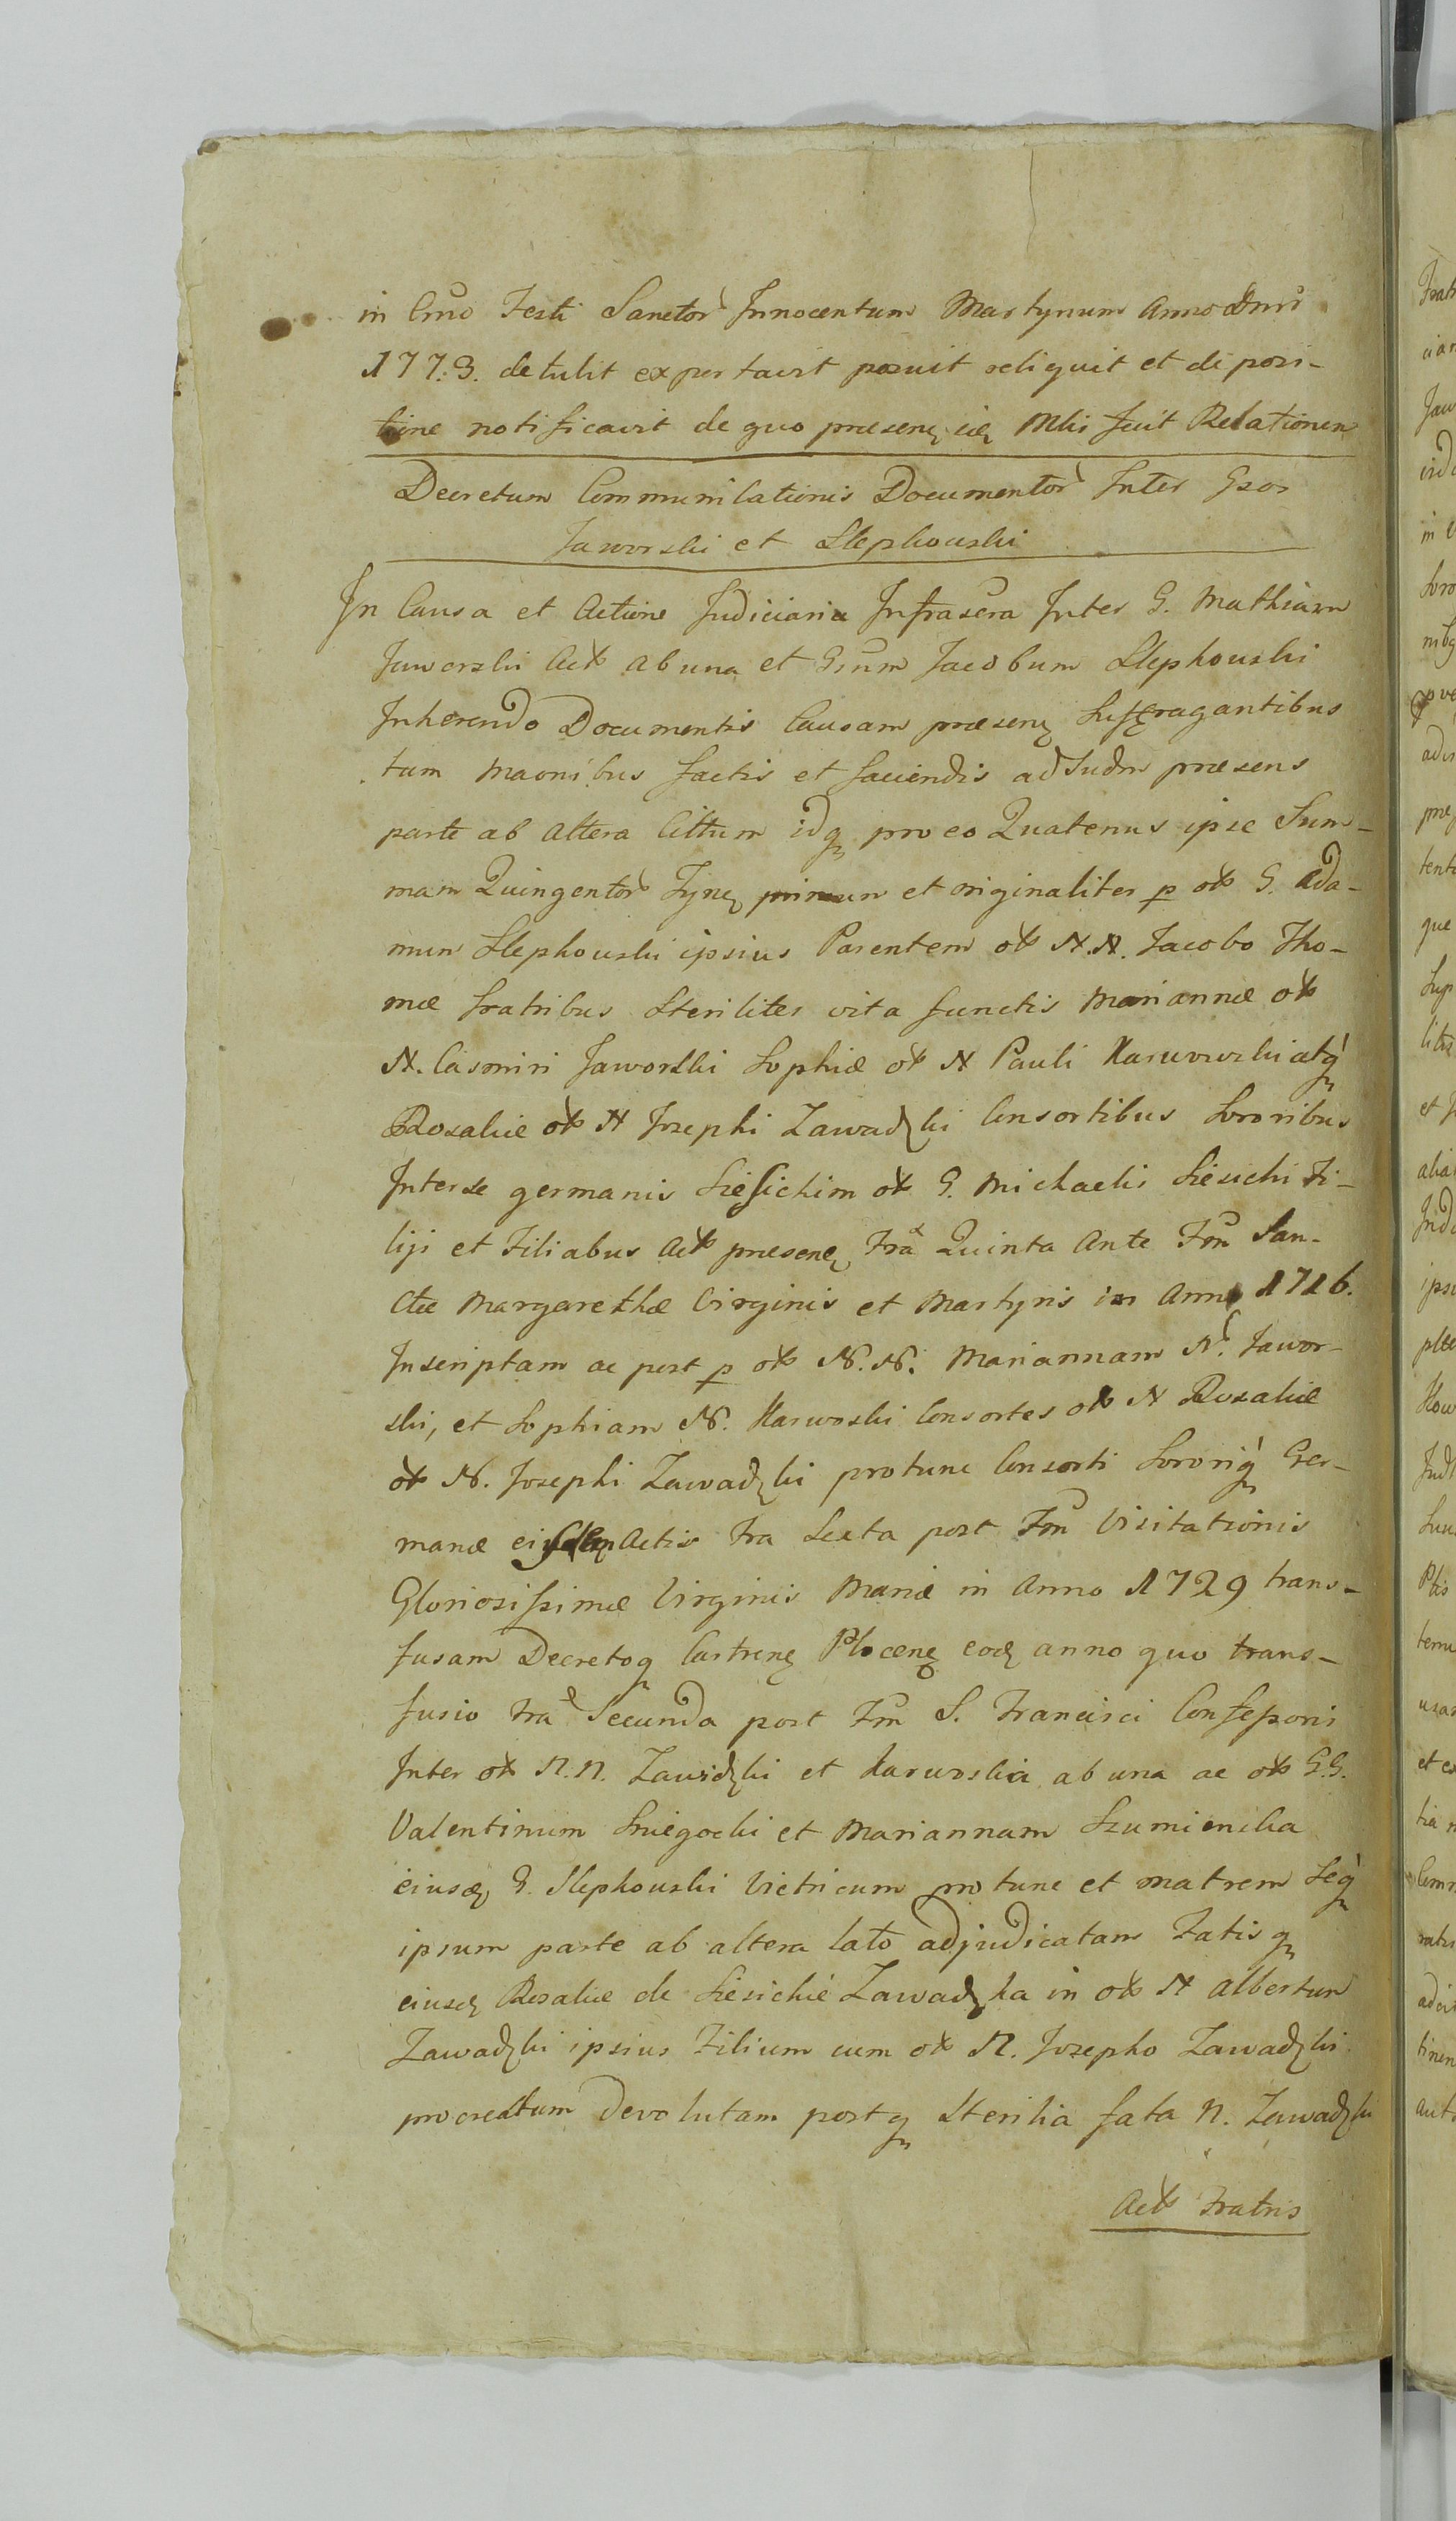 in Cr̃no Festi Sanctor̃ Innocentum Martyrum Anno Dnĩ
177.3. detulit exportavit posuit reliquit et deposi-
tione notificavit de quo præsenȩ Mĩtis fecit Relationem
Decretum Communicationis Documentor̃ Inter Gzos
Jaworski et Slepkowski
In Causa et Actione Judiciaria Infrascra Inter G. Mathiam
Jaworski Act ab una et Gsum Jacobum Slepkowski
Inherendo Documentis Causam præsenȩ Suffragantibus
tum maonibus factis et faciendis ad Judm præsens
parte ab altera Cittum idq pro eo Quatenus ipse Sum-
mam Quingentor̃ Tynȩ primum et originaliter p ox G. Ada-
mum Slepkowski ipsius Parentem ox N.N. Jacobo Tho-
mæ fratribus Steriliter vita functis Mariannæ ox
N. Casmiri Jaworski Sophiæ ox N Pauli Karwowski atq́
Rosaliæ ox N Josephi Zawadzki Consortibus Sororibus
Inter se germanis Kiesichim ox G. Michaelis Kiesichi Fi-
liji et Filiabus Act præsenȩ Fra Quinta Ante Fm̃ San-
ctæ Margarethæ Virginis et Martyris in Anno 1716.
Inscriptam ac post p ox N.N. Mariannam N. Jawor-
ski, et Sophiam N. Karwoski Consortes ox N Rosaliæ
ox N. Josephi Zawadzki protunc Consorti Sororiq́ Ger-
manæ eisdem Actis Fra Sexta post Fm̃ Visitationis
Gloriosissimæ Virginis Mariæ in Anno 1729 trans-
fusam Decretoq Castrenȩ Plocenȩ eodȩ anno quo trans-
fusio Fra Secunda post Fm̃ S. Francisci Confessoris
Inter ox N.N. Zawidzki et Karwoskia ab una ac ox G.G.
Valentinum Sniegocki et Mariannam Szumienska
eiusdȩ G. Slepkowski Vitricum pro tunc et matrem Seq́
ipsum parte ab altera lato adjudicatam Fatis q
eiusdȩ Rosaliæ de Kiesichie Zawadzka in ox N Albertum
Zawadzki ipsius Filium cum ox N. Josepho Zawadzki
procreatum devolutam postq Sterilia fata N. Zawadzki
Act Fratris